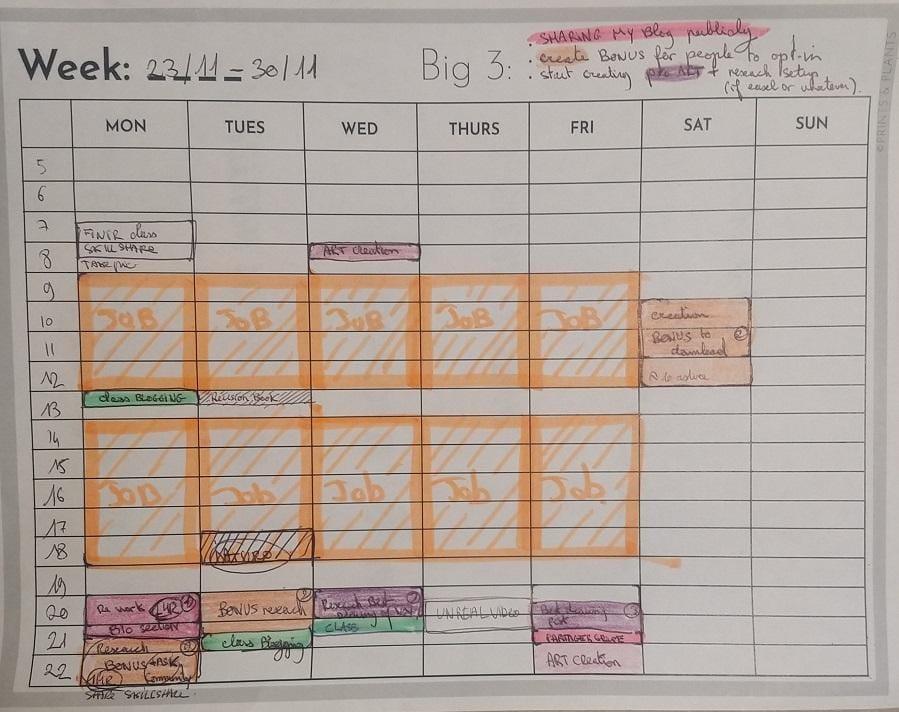 Week: 23/11 = 30/11
Big 3:
. SHARING MY Blog publicly
: create BONUS for people to opt-in
. start creating pro ART + reseach setup
(if easel or whatever).
©PRINTS & PLANTS
MON TUES WED THURS FRI SAT SUN
5
6
7
FINIR class
SKILLSHARE
8
TAKE pic
ART Creation
9
10
JOB JOB JOB JOB JOB
creation
11
BONUS to
download 2
12
13
class BLOGGING
Revision Book
14
15
16
JOB Job Job Job Job
17
18
NATURO
19
20
Re work 1HR 1
BONUS reseach 2
Reseach Best
UNREAL VIDEO
3
21
Bio section
class Blogging
CLASS
PARTAGER
Research
22
BONUS + ASK
Community
1HR
ART Creation
SHARE SKILLSHARE.